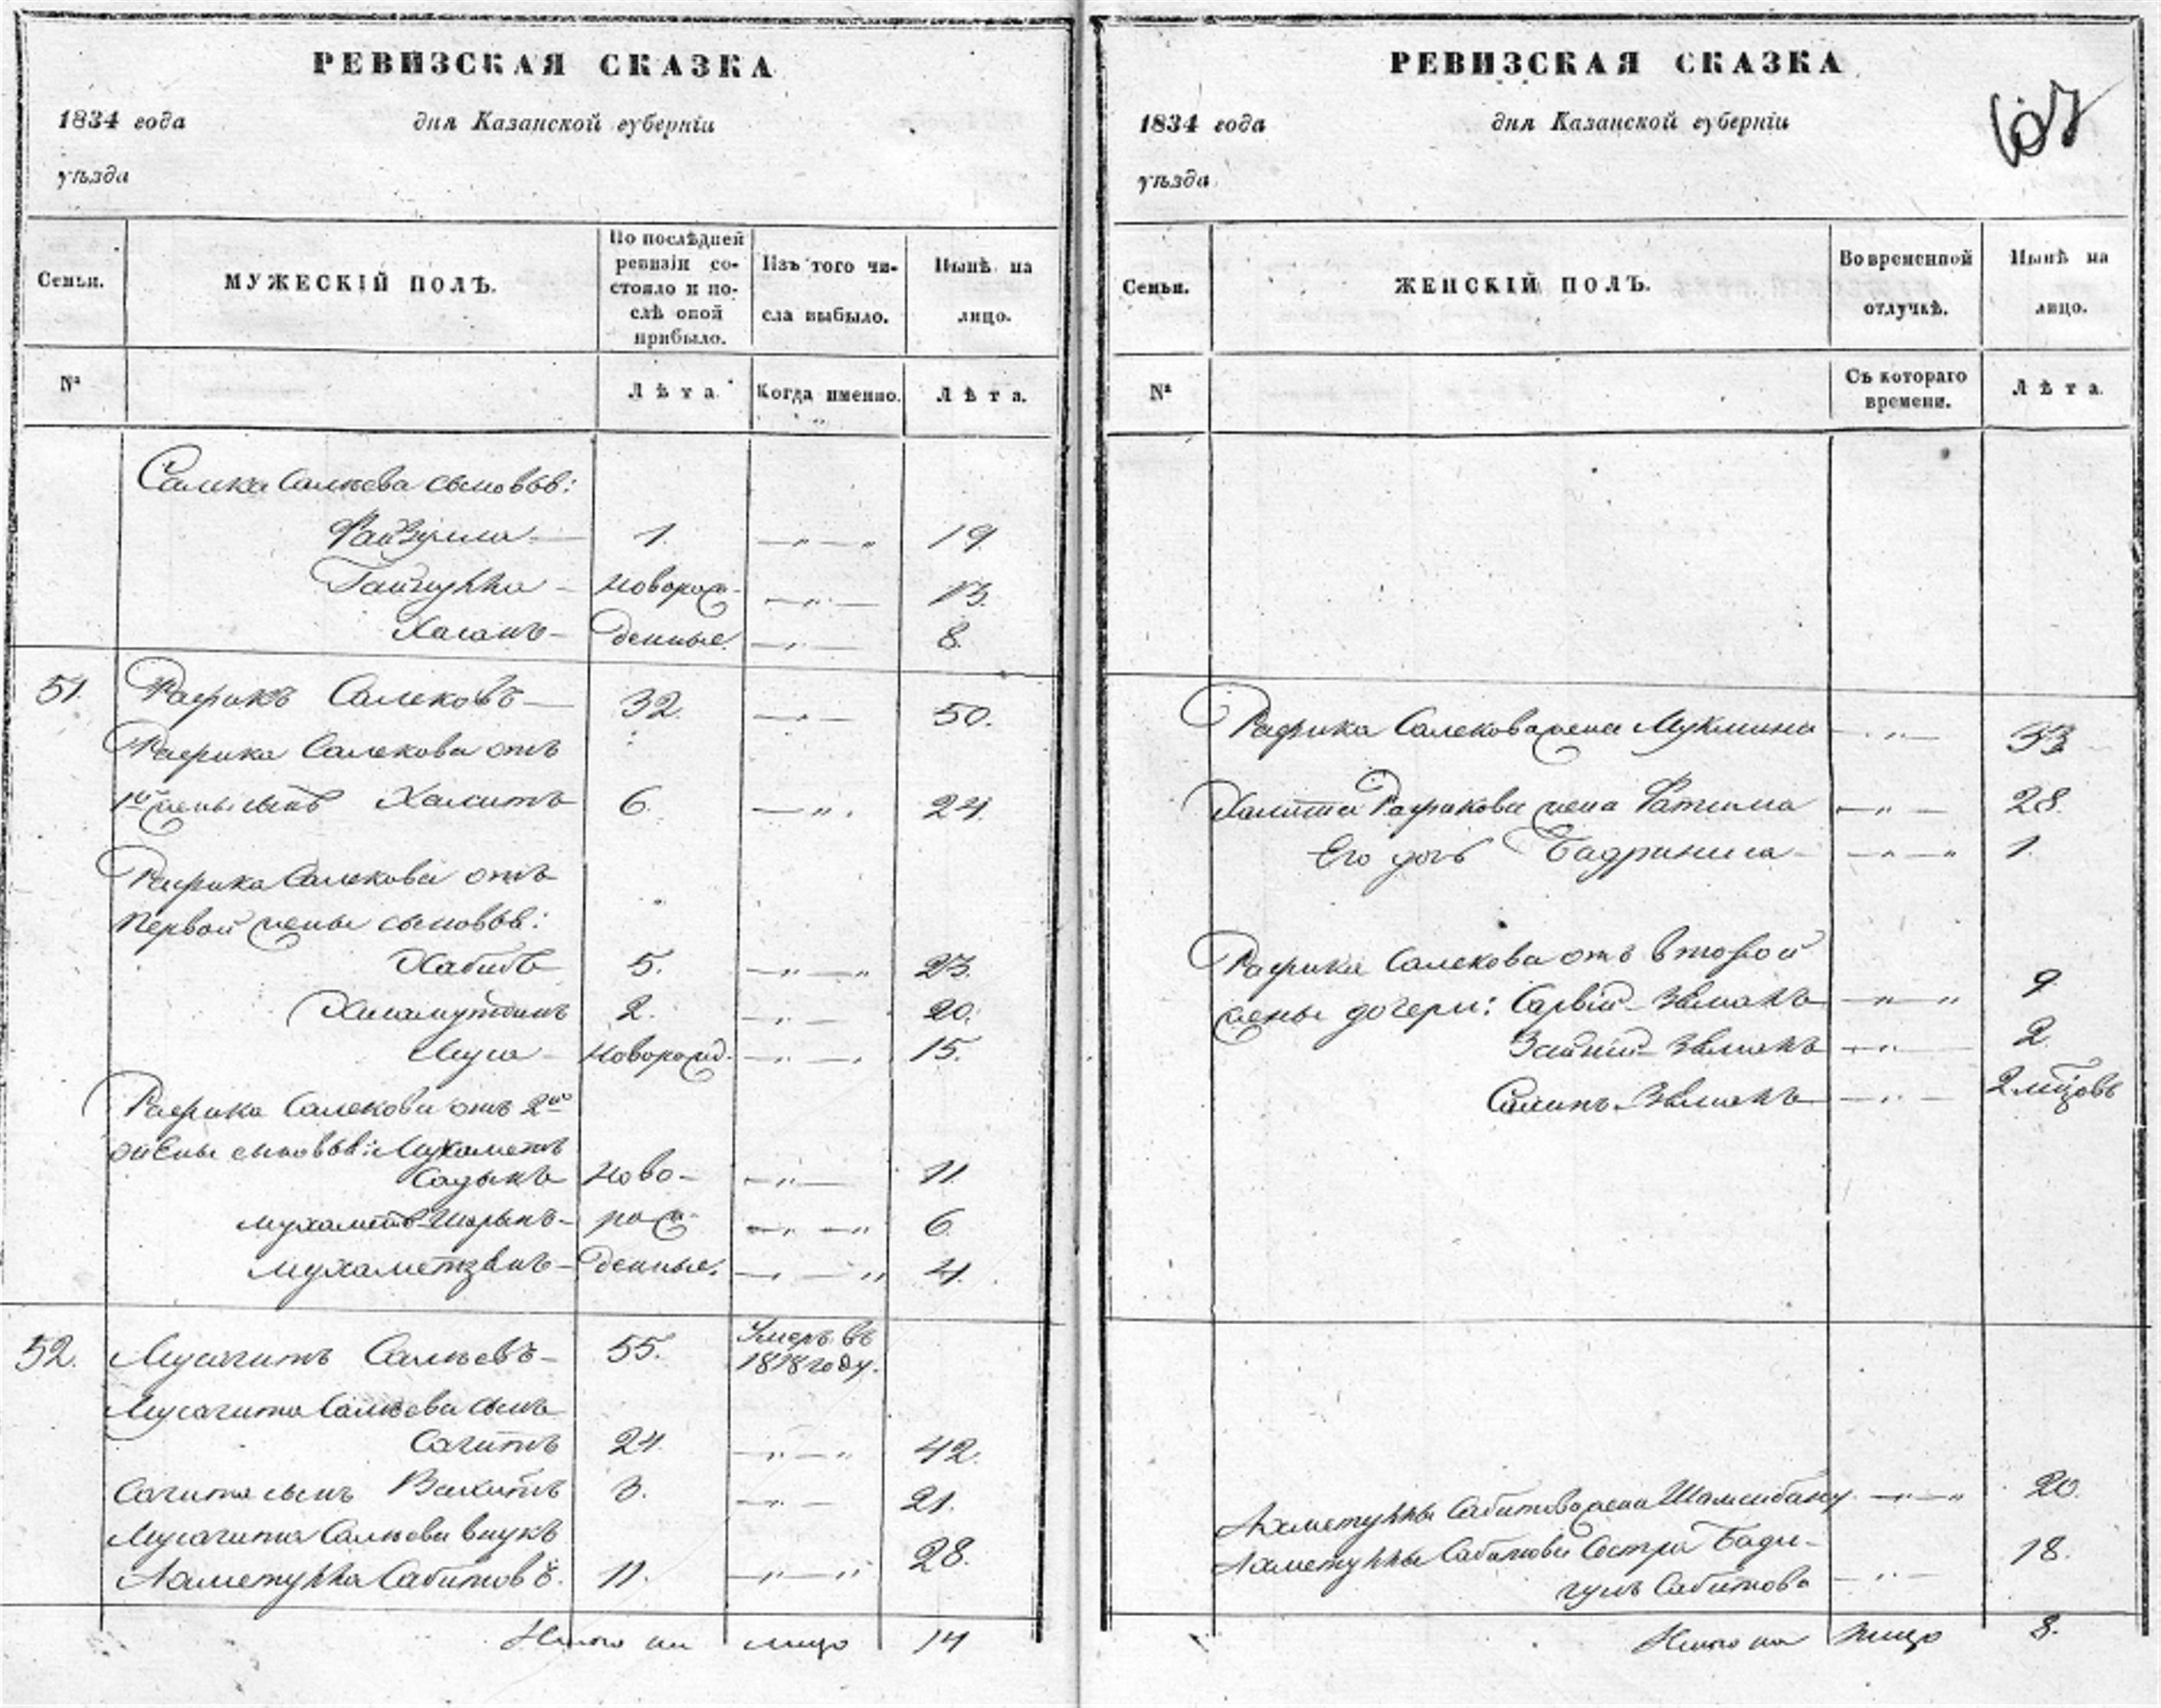 РЕВИЗСКАЯ СКАЗКА
1834 года дня Казанской губерніи
уѣзда
Семьи. МУЖЕСКІЙ ПОЛЪ. По послѣдней ревизіи состояло и послѣ оной прибыло. Изъ того числа выбыло. Нынѣ на лицо.
№ Лѣта. Когда именно. Лѣта.
Салиха Салиева сыновья:
Файзулла 1. 19
Гайнулла новорож- 13.
Хасанъ денные. 8.
51. Рафикъ Салековъ 32. 50.
Рафика Салекова отъ
1ой жены сынъ Халитъ 6. 24.
Рафика Салекова отъ
первой жены сыновья:
Хабибъ 5. 23.
Хисамутдинъ 2. 20.
Муса новорожд. 15.
Рафика Салекова отъ 2ой
жены сыновья: Мухаметъ
Садыкъ ново- 11.
Мухаметъ-Шарыпъ рож- 6
Мухаметзянъ денные. 4.
52. Мусагитъ Салиевъ 55. Умеръ въ 1818 году.
Мусагита Салиева сынъ
Сагитъ 24. 42.
Сагита сынъ Вахитъ 3. 21.
Мусагита Салиева внукъ
Ахметулла Сабитовъ. 11. 28.
Итого на лицо 14
РЕВИЗСКАЯ СКАЗКА
1834 года дня Казанской губерніи
уѣзда
67
Семьи. ЖЕНСКІЙ ПОЛЪ. Во временной отлучкѣ. Нынѣ на лицо.
№ Съ котораго времени. Лѣта.
Рафика Салекова жена Мукмина 33
Халита Рафикова жена Фатима 28.
Его дочь Бадриниса 1.
Рафика Салекова отъ второй
жены дочери: 9
2
2 мѣсцовъ
Ахметуллы Сабитова жена Шамсибану 20.
Ахметуллы Сабитова сестра Бади-
гуль Сабитова 18.
Итого на лицо 8.